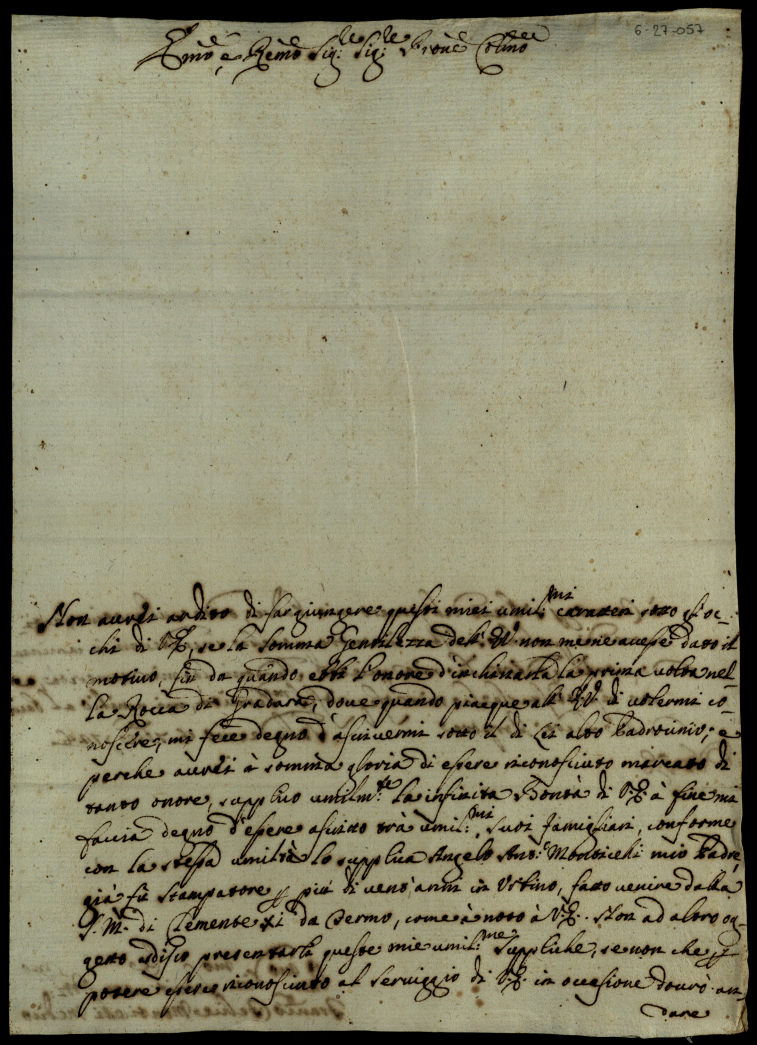 6-27-057
Emo e Remo Sig:re Sig:re Prone Colmo
Non averei ardito di far giungere questi miei umil:mi caratteri sotto gl'oc-
chi di V.E., se la somma Gentilezza dell' E.V. non me ne avesse dato il
motivo, fin da quando ebbi l'onore d'inchinarla la prima volta nel-
la Rocca di Gradara, dove quando piacque all' E.V. di volermi co-
noscere, mi fece degno d'ascrivermi sotto il di Lei alto Padrocinio; e
perche averei à somma gloria di essere riconosciuto marcato di
tanto onore, supplico umilm:te la infinita Bontà di V.E. à fine mi
faccia degno d'essere ascritto trà umil:mi suoi famigliari, conforme
con la stessa umiltà lo supplica Angelo Ant: Monticelli mio Padre,
già fù stampatore p più di vent'anni in Urbino, fatto venire dalla
S.M. di Clemente XI da Fermo, come è noto à V.E. Non ad altro og-
getto ardisco presentarli queste mie umil:me suppliche, se non che p
potere essere riconosciuto al serviggio di V.E. in occasione dovrò an-
dare